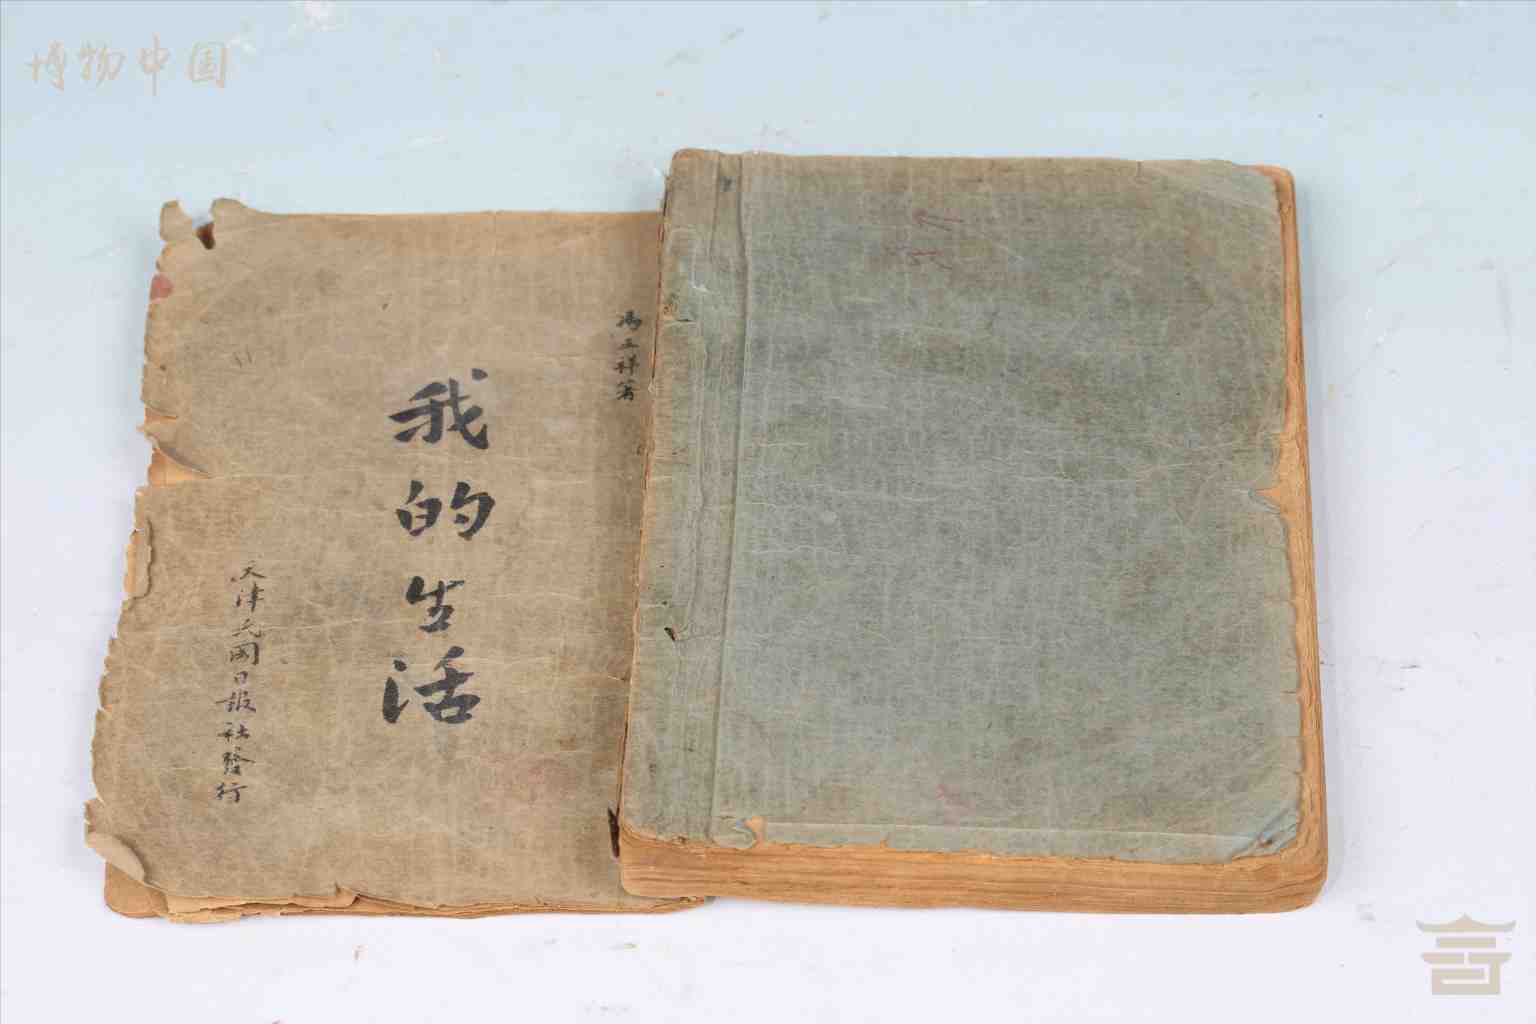 博物中国
冯玉祥著
我的生活
天津民国日报社發行